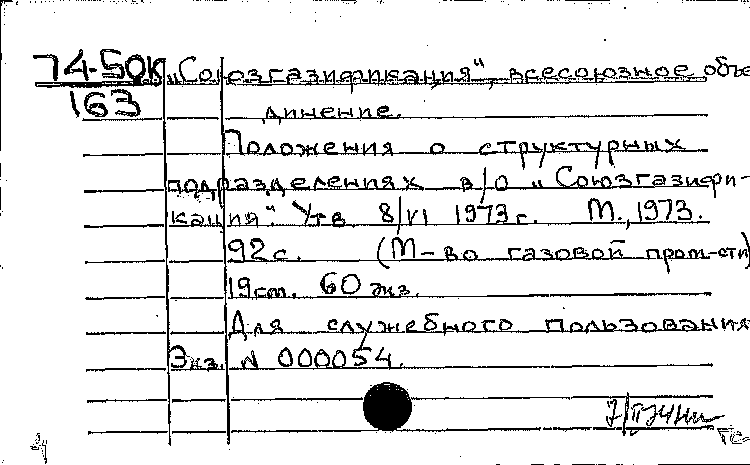 74-50К „Союзгазификация", всесоюзное объе
163 динение.
Положения о структурных
подразделениях в/о „Союзгазифи-
кация". Утв. 8/VI 1973г. М., 1973.
92с. (М-во газовой пром-сти)
19см. 60 экз.
Для служебного пользования
Экз. N 000054.